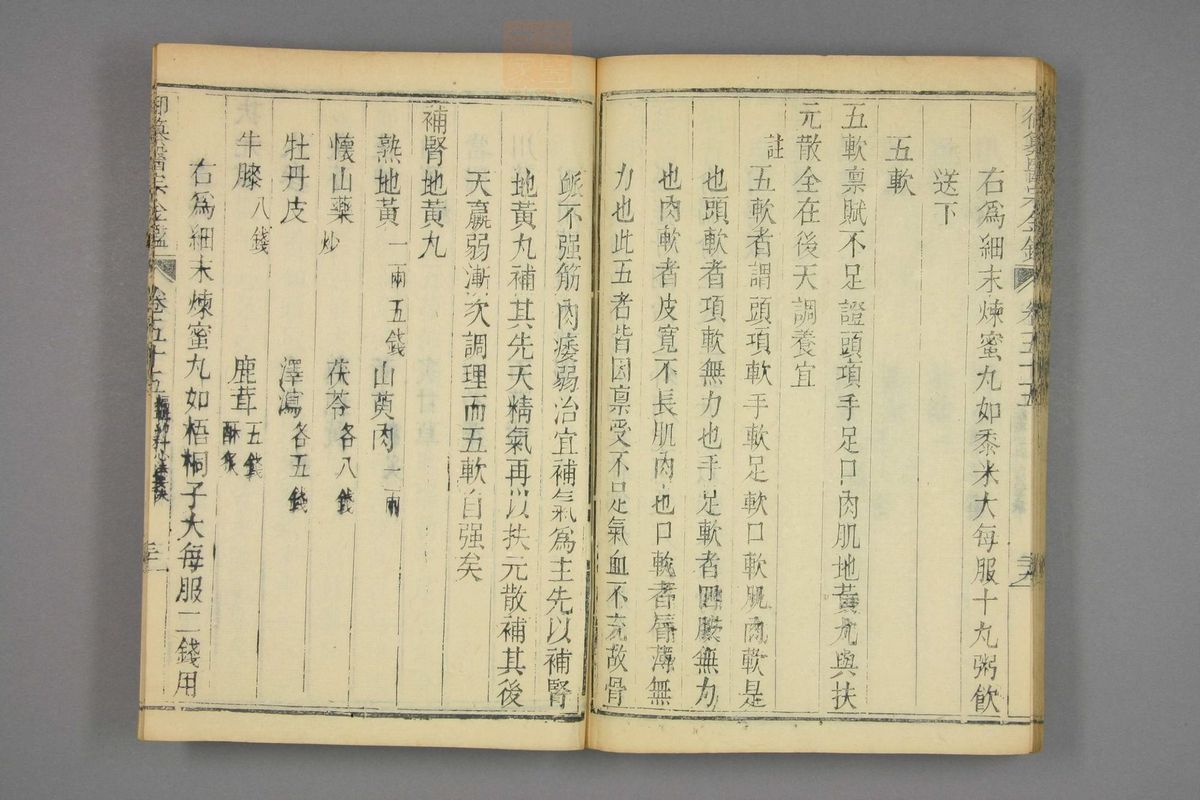 右爲細末煉蜜丸如黍米大每服十丸粥飲
送下
五軟
五軟禀賦不足證頭項手足口肉肌地黃丸與扶
元散全在後天調養宜
註
五軟者謂頭項軟手軟足軟口軟肌肉軟是
也頭軟者項軟無力也手足軟者四肢無力
也肉軟者皮寬不長肌肉也口軟者唇薄無
力也此五者皆因禀受不足氣血不充故骨
脈不强筋肉痿弱治宜補氣爲主先以補腎
地黃丸補其先天精氣再以扶元散補其後
天羸弱漸次調理而五軟自强矣
補腎地黃丸
熟地黃一兩五錢 山萸肉一兩
懷山藥炒 茯苓各八錢
牡丹皮 澤瀉各五錢
牛膝八錢 鹿茸五錢酥炙
右爲細末煉蜜丸如梧桐子大每服二錢用
御纂醫宗金鑑 卷五十五